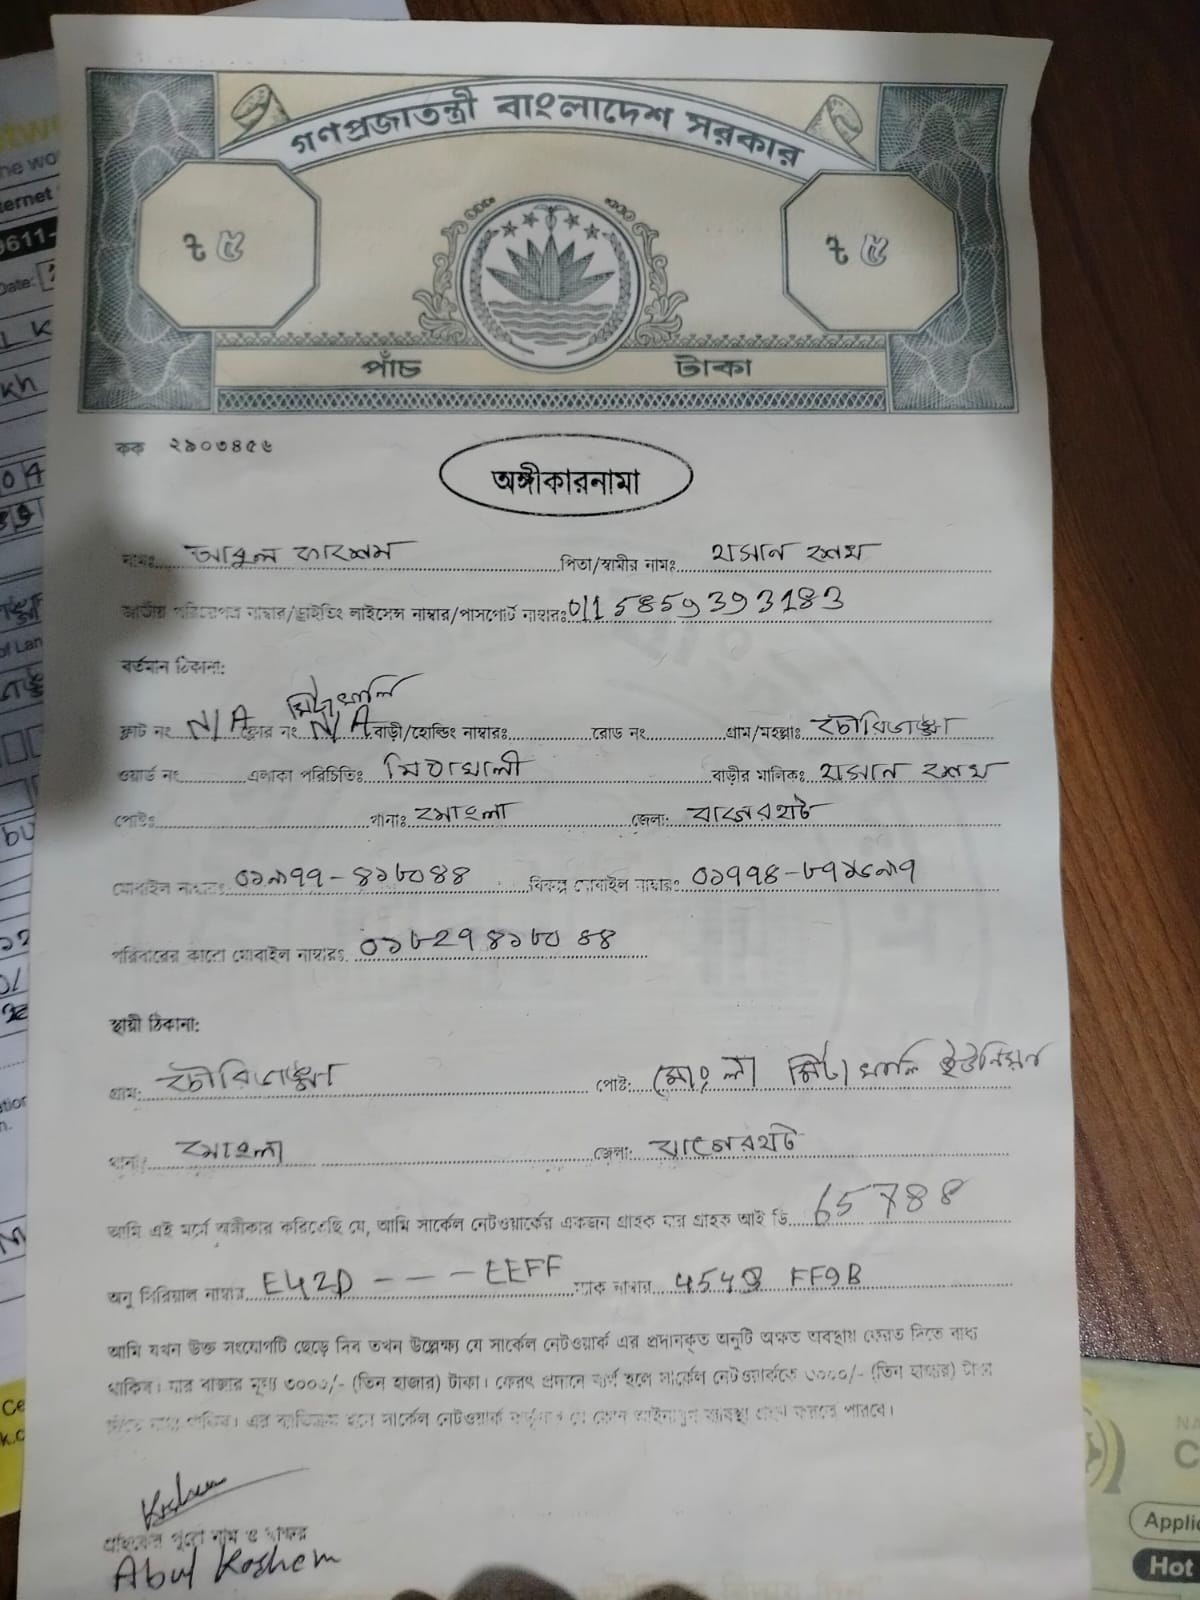 গণপ্রজাতন্ত্রী বাংলাদেশ সরকার
৳ ৫ ৳ ৫
পাঁচ টাকা
কক ২৯০৩৪৫৬
অঙ্গীকারনামা
নামঃ আবুল কাশেম পিতা/স্বামীর নামঃ হাসান শেখ
জাতীয় পরিচয়পত্র নাম্বার/ড্রাইভিং লাইসেন্স নাম্বার/পাসপোর্ট নাম্বারঃ 0115859393183
বর্তমান ঠিকানা:
মিঠাখালি
ফ্লাট নং N/A ফ্লোর নং N/A বাড়ী/হোল্ডিং নাম্বারঃ রোড নং গ্রাম/মহল্লাঃ চৌরিডাঙ্গা
ওয়ার্ড নং এলাকা পরিচিতিঃ মিঠাখালী বাড়ীর মালিকঃ হাসান শেখ
পোষ্টঃ থানাঃ মোংলা জেলা: বাগেরহাট
মোবাইল নাম্বারঃ ০১৯৭৭-৪১৮০৪৪ বিকল্প মোবাইল নাম্বারঃ
পরিবারের কারো মোবাইল নাম্বারঃ ০১৮২৭৪১৮০৪৪
স্থায়ী ঠিকানা:
গ্রাম: চৌরিডাঙ্গা পোষ্ট: মোংলা মিঠাখালি ইউনিয়ন
থানা: মোংলা জেলা: বাগেরহাট
আমি এই মর্মে অঙ্গীকার করিতেছি যে, আমি সার্কেল নেটওয়ার্কের একজন গ্রাহক যার গ্রাহক আই ডি 65788
অনু সিরিয়াল নাম্বার E42D - - - EEFF ম্যাক নাম্বার FF9B
আমি যখন উক্ত সংযোগটি ছেড়ে দিব তখন উল্লেক্ষ্য যে সার্কেল নেটওয়ার্ক এর প্রদানকৃত অনুটি অক্ষত অবস্থায় ফেরত দিতে বাধ্য
থাকিব। যার বাজার মূল্য ৩০০০/- (তিন হাজার) টাকা। ফেরৎ প্রদানে ব্যর্থ হলে সার্কেল নেটওয়ার্ককে ৩০০০/- (তিন হাজার) টাকা
দিতে বাধ্য থাকিব। এর ব্যতিক্রম হলে সার্কেল নেটওয়ার্ক কর্তৃপক্ষ যে কোন আইনানুগ ব্যবস্থা গ্রহণ করতে পারবে।
Koshem
গ্রাহকের পুরো নাম ও স্বাক্ষর
Abul Koshem
Applic
Hot